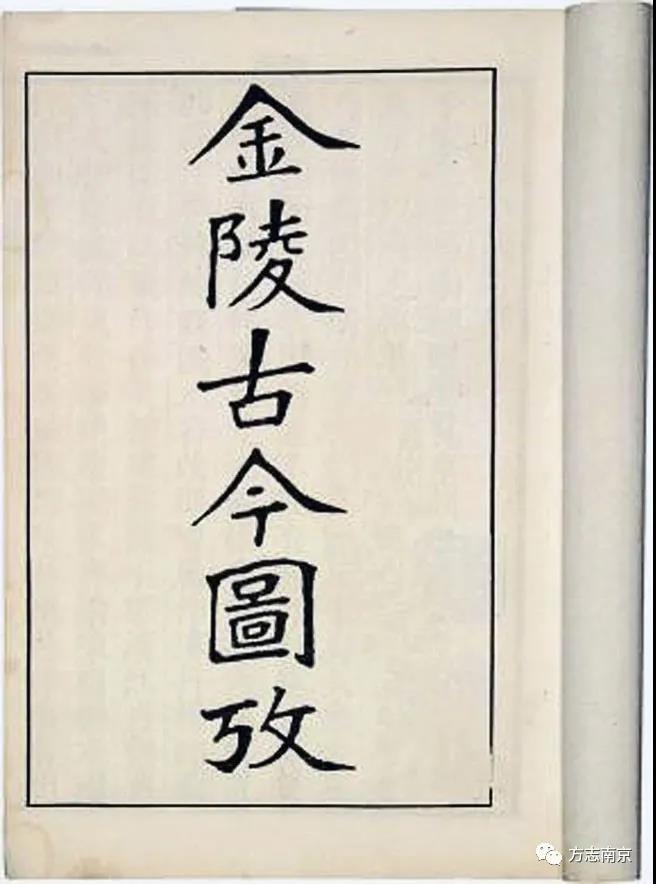 金陵古今圖攷
方志南京